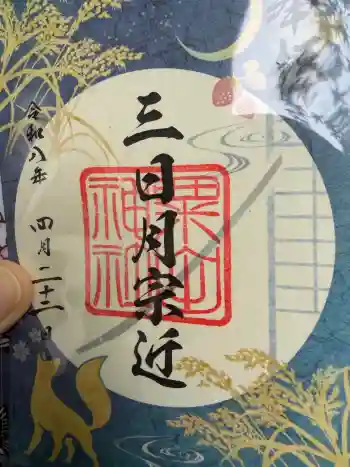 三日月宗近
令和八年
四月二十二日
粟田
神社